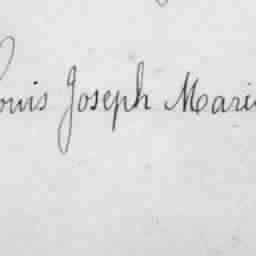 Louis Joseph Marie